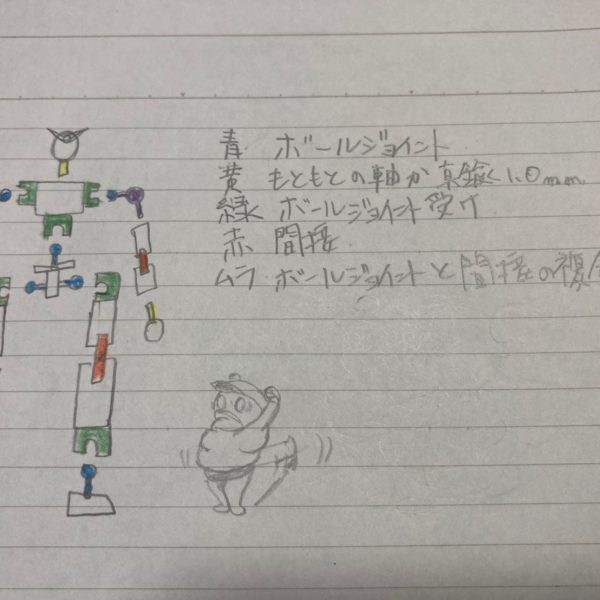 青 ボールジョイント
黄 もともとの軸か真鍮く1.0mm
緑 ボールジョイント受け
赤 間接
ムラ ボールジョイントと間接の複合